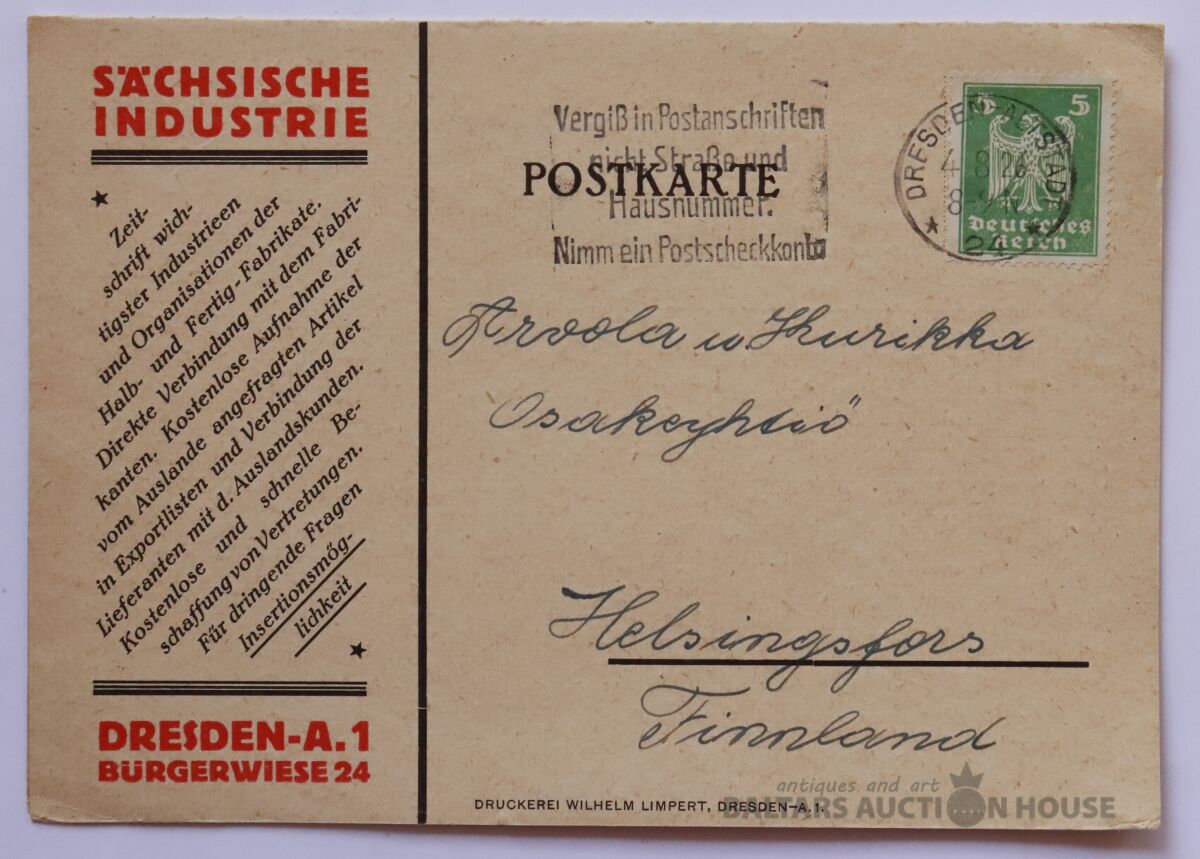 SÄCHSISCHE
INDUSTRIE
Zeit-
schrift wich-
tigster Industrieen
und Organisationen der
Halb- und Fertig-Fabrikate.
Direkte Verbindung mit dem Fabri-
kanten. Kostenlose Aufnahme der
vom Auslande angefragten Artikel
in Exportlisten und Verbindung der
Lieferanten mit d. Auslandskunden.
Kostenlose und schnelle Be-
schaffung von Vertretungen.
Für dringende Fragen
Insertionsmög-
lichkeit
DRESDEN-A.1
BÜRGERWIESE 24
Vergiß in Postanschriften
nicht Straße und
Hausnummer.
Nimm ein Postscheckkonto
POSTKARTE
DRESDEN-ALTSTADT
4.8.26
24
5 5
Deutsches
Reich
Arvola u Kurikka
Osakeyhtiö
Helsingfors
Finnland
DRUCKEREI WILHELM LIMPERT, DRESDEN-A.1.
antiques and art
BALTARS AUCTION HOUSE